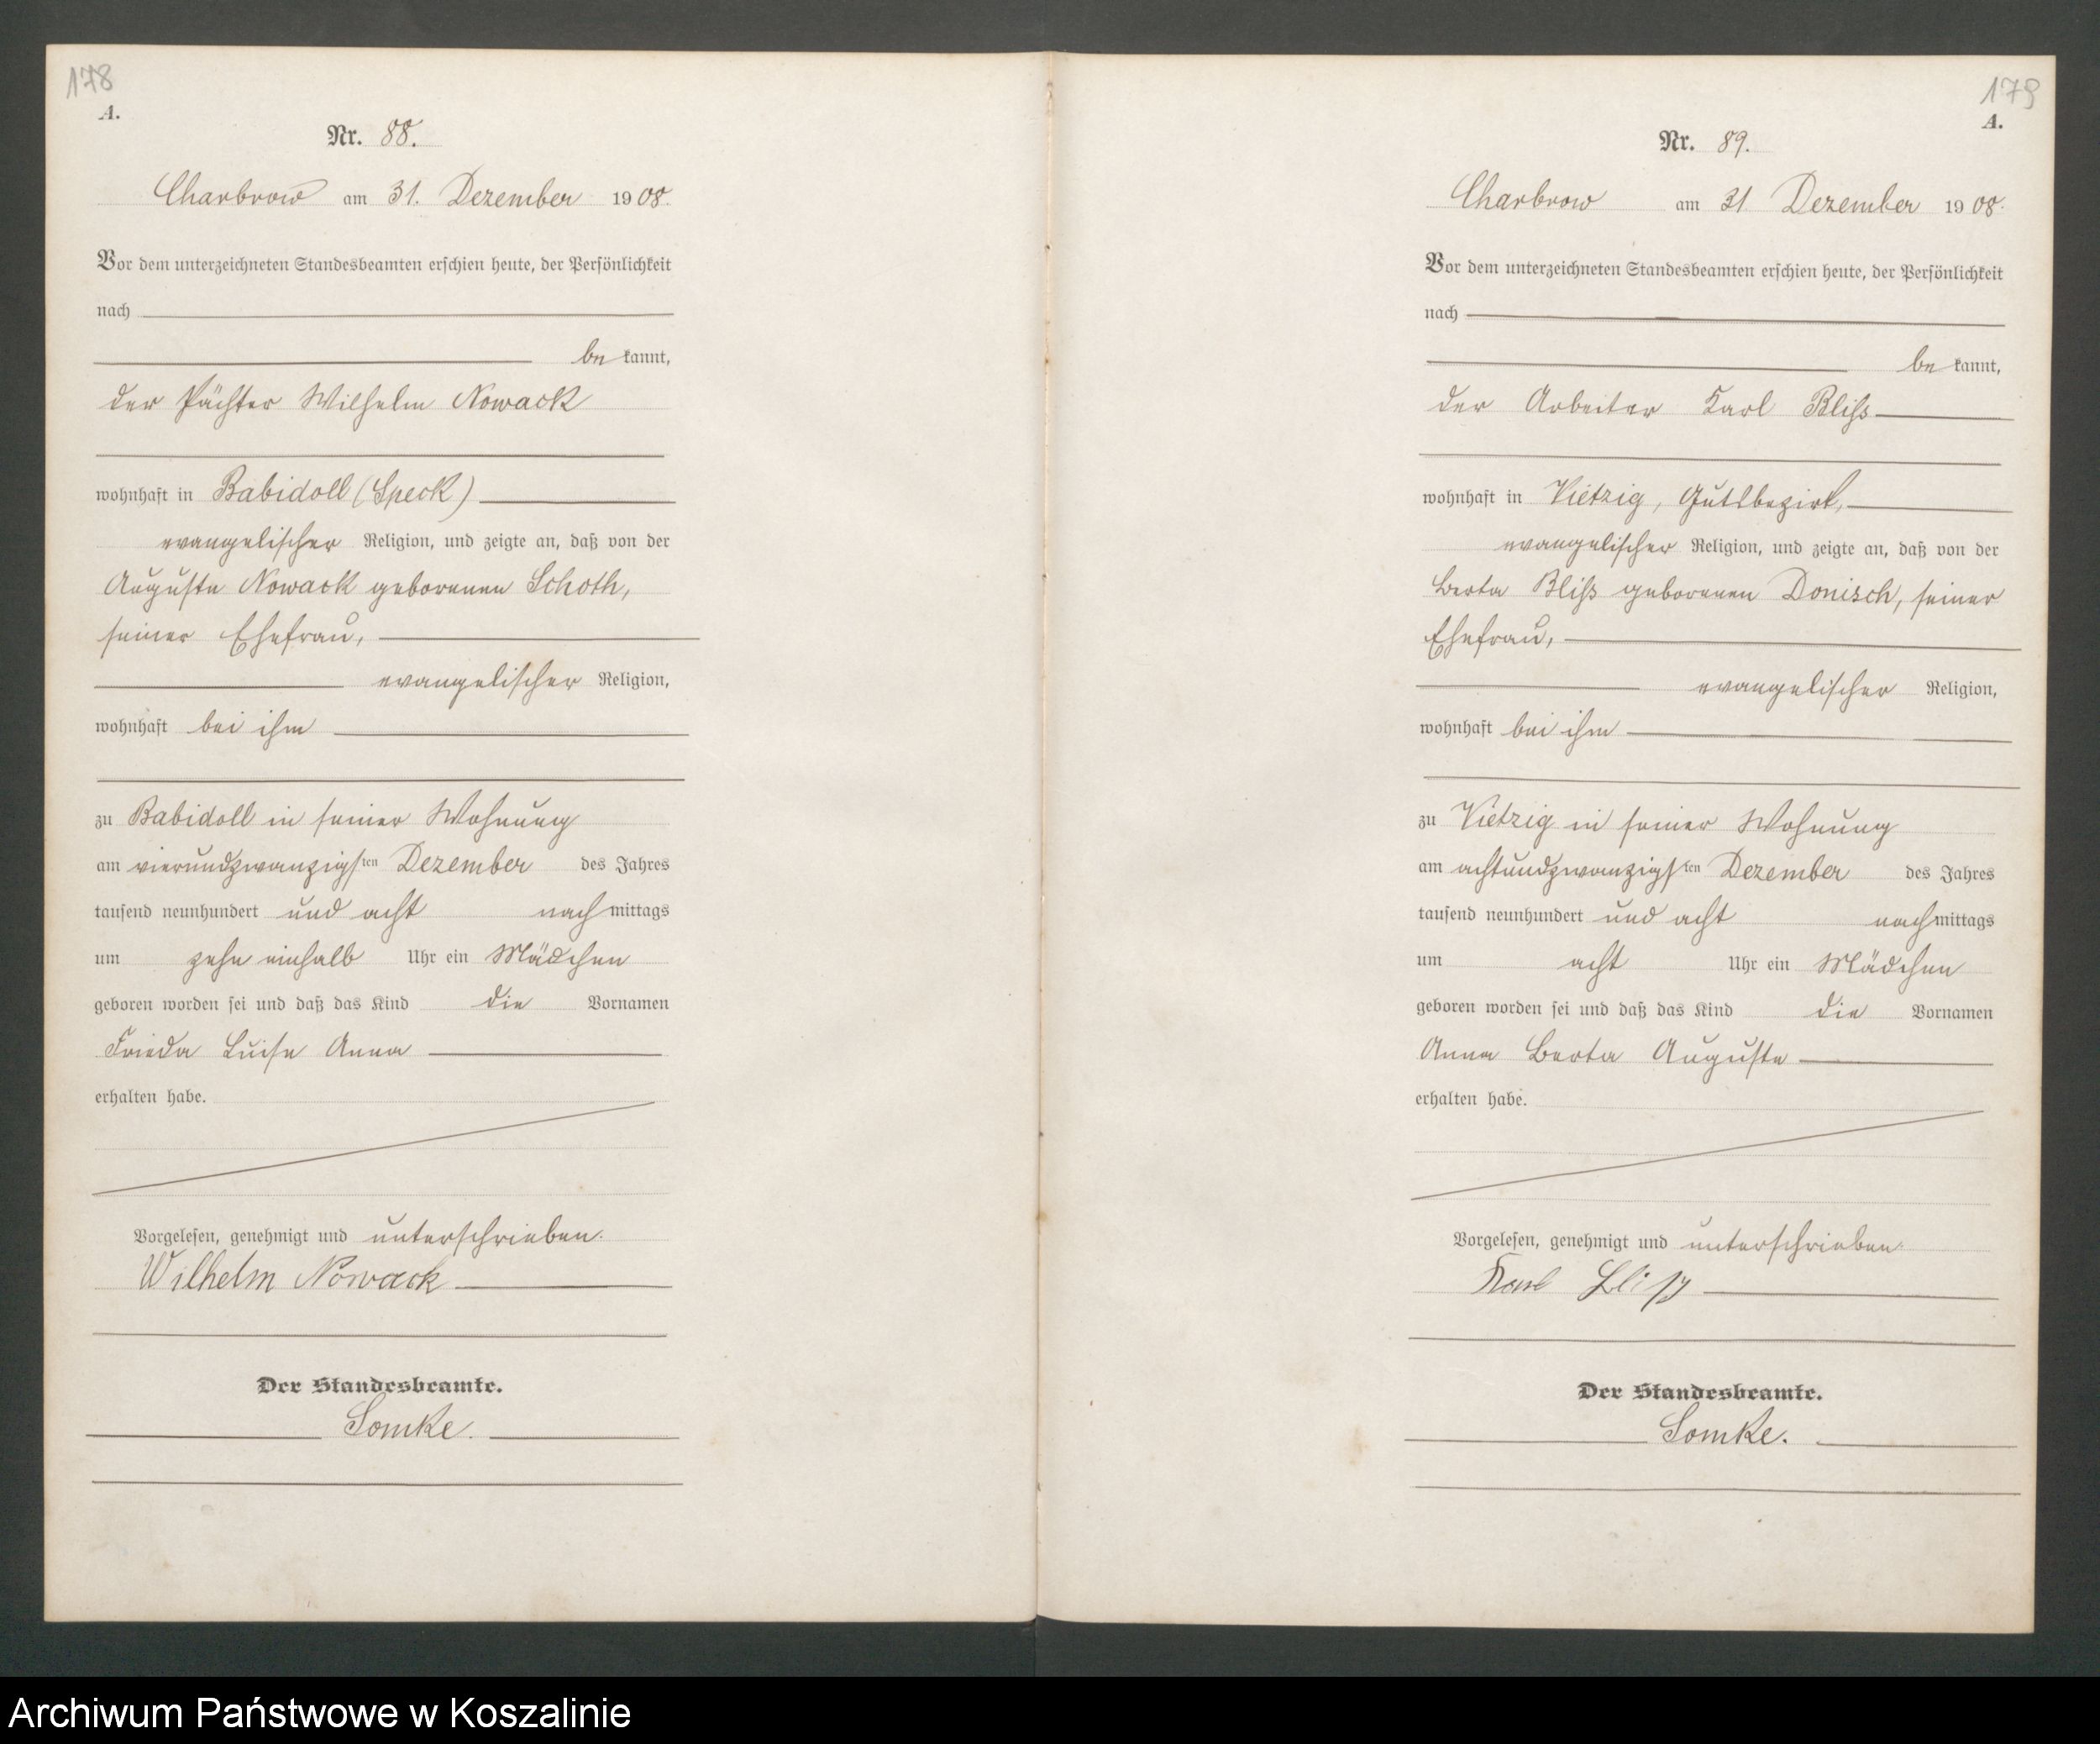 178
A.
Nr. 88.
Charbrow am 31. Dezember 1908.
Vor dem unterzeichneten Standesbeamten erschien heute, der Persönlichkeit
nach
be kannt,
der Pächter Wilhelm Nowack
wohnhaft in Babidoll (Speck)
evangelischer Religion, und zeigte an, daß von der
Auguste Nowack geborenen Schoth,
seiner Ehefrau,
evangelischer Religion,
wohnhaft bei ihm
zu Babidoll in seiner Wohnung
am vierundzwanzigsten Dezember des Jahres
tausend neunhundert und acht nachmittags
um zehn einhalb Uhr ein Mädchen
geboren worden sei und daß das Kind die Vornamen
Frieda Luise Anna
erhalten habe.
Vorgelesen, genehmigt und unterschrieben.
Wilhelm Nowack
Der Standesbeamte.
Somke.
179
A.
Nr. 89.
Charbrow am 31 Dezember 1908.
Vor dem unterzeichneten Standesbeamten erschien heute, der Persönlichkeit
nach
be kannt,
der Arbeiter Karl Bliss
wohnhaft in Vietzig, Gutsbezirk,
evangelischer Religion, und zeigte an, daß von der
Berta Bliss geborenen Donisch, seiner
Ehefrau,
evangelischer Religion,
wohnhaft bei ihm
zu Vietzig in seiner Wohnung
am achtundzwanzigsten Dezember des Jahres
tausend neunhundert und acht nachmittags
um acht Uhr ein Mädchen
geboren worden sei und daß das Kind die Vornamen
Anna Berta Auguste
erhalten habe.
Vorgelesen, genehmigt und unterschrieben.
Karl Bliß
Der Standesbeamte.
Somke.
Archiwum Państwowe w Koszalinie